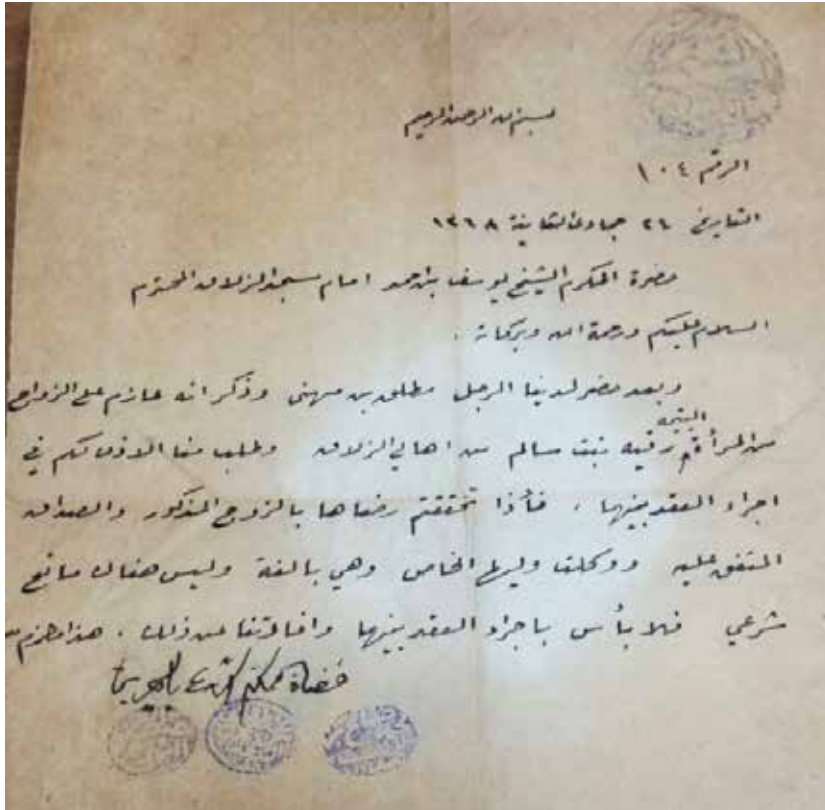 بسم الله الرحمن الرحيم
الرقم ١٠٤
التاريخ ٢٦ جمادى الثانية ١٣٦٨
حضرة المكرم الشيخ يوسف بن احمد امام مسجد الزلاق المحترم
السلام عليكم ورحمة الله وبركاته .
وبعد حضر لدينا الرجل مطلق بن مهنى وذكر انه عازم على الزواج
من المرأة رقيه بنت سالم من اهالي الزلاق وطلب منا الاذن لكم في
اجراء العقد بينهما ، فأذا تحققتم رضاها بالزوج المذكور والصداق
المتفق عليه ووكلت وليها الخاص وهي بالغة وليس هناك مانع
شرعي فلا بأس باجراء العقد بينهما وافادتنا عن ذلك . هذا
قضاة محكمة الشرع بالبحرين